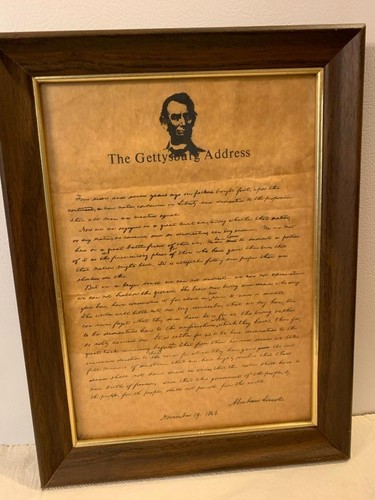 The Gettysburg Address
Four score and seven years ago our fathers brought forth, upon this
continent, a new nation, conceived in liberty, and dedicated to the proposition
that all men are created equal.
Now we are engaged in a great civil war, testing whether that nation,
or any nation so conceived, and so dedicated, can long endure. We are met
here on a great battle-field of that war. We
of it as the final resting place of those who here gave their lives that
that nation might live. It is altogether fitting and proper that we
should do this.
But in a larger sense we can not dedicate we can not consecrate
we can not hallow this ground. The brave men, living and dead, who
here, have consecrated it far above our power to add or detract.
The world will little note, nor long remember, what we say here,
can never forget what they did here. It is for us, the living, rather
to be dedicated here to the unfinished work which they have, thus far,
so nobly carried on. It is rather for us to be here dedicated to the
great task remaining before us that from these honored dead we take
that cause for which they here gave the last
full measure of devotion that we here highly resolve that these
dead shall not have died in vain; that the nation shall have a
new birth of freedom, and that government of the people, by
the people, for the people, shall not perish from the earth.
Abraham Lincoln
November 19, 1863